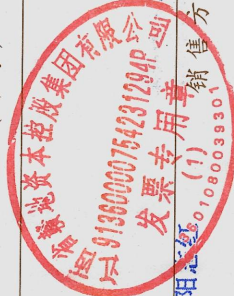 资本控股集团有限公司
91360000754231294P
发票专用章
(1)
3601080039301
销售方